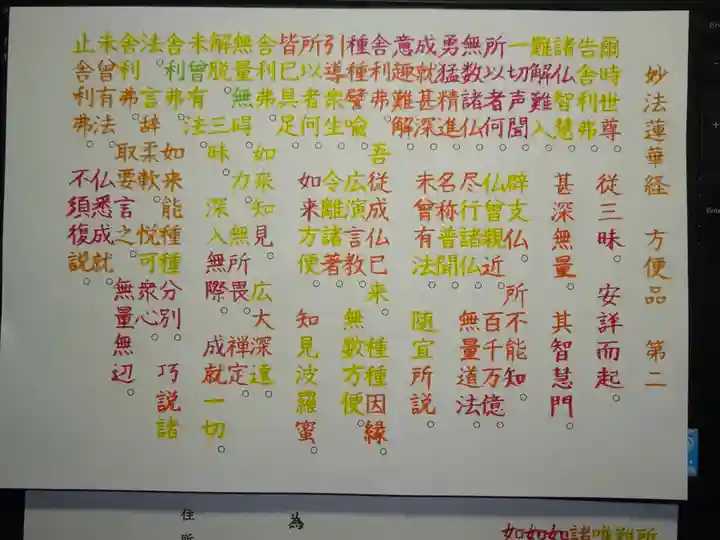 妙法蓮華経　方便品　第二
爾時世尊。從三昧。安詳而起。
告舎利弗
諸仏智慧。甚深無量。其智慧門。
難解難入。
一切声聞。辟支仏。所不能知。
所以者何。仏曽親近。百千万億
無数諸仏。尽行諸仏。無量道法。
勇猛精進。名称普聞。
成就甚深。未曽有法。随宜所説。
意趣難解。
舎利弗。吾從成仏已来。種種因縁。
種種譬喩。広演言教。無数方便。
引導衆生。令離諸著。
所以者何。如来方便。知見波羅蜜。
皆已具足。
舎利弗。如来知見。広大深遠。
無量無碍。力。無所畏。禅定。
解脱三昧。深入無際。成就一切。
未曽有法。
舎利弗。如来能種種分別。巧説諸
法。言辞柔軟。悦可衆心。
舎利弗。取要言之。無量無辺。
未曽有法。仏悉成就。
止舎利弗。不須復説。
所難唯諸如如如
為
住